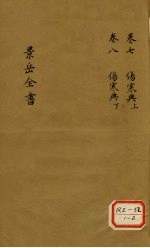 卷七 傷寒典上
卷八 傷寒典下
景岳全書